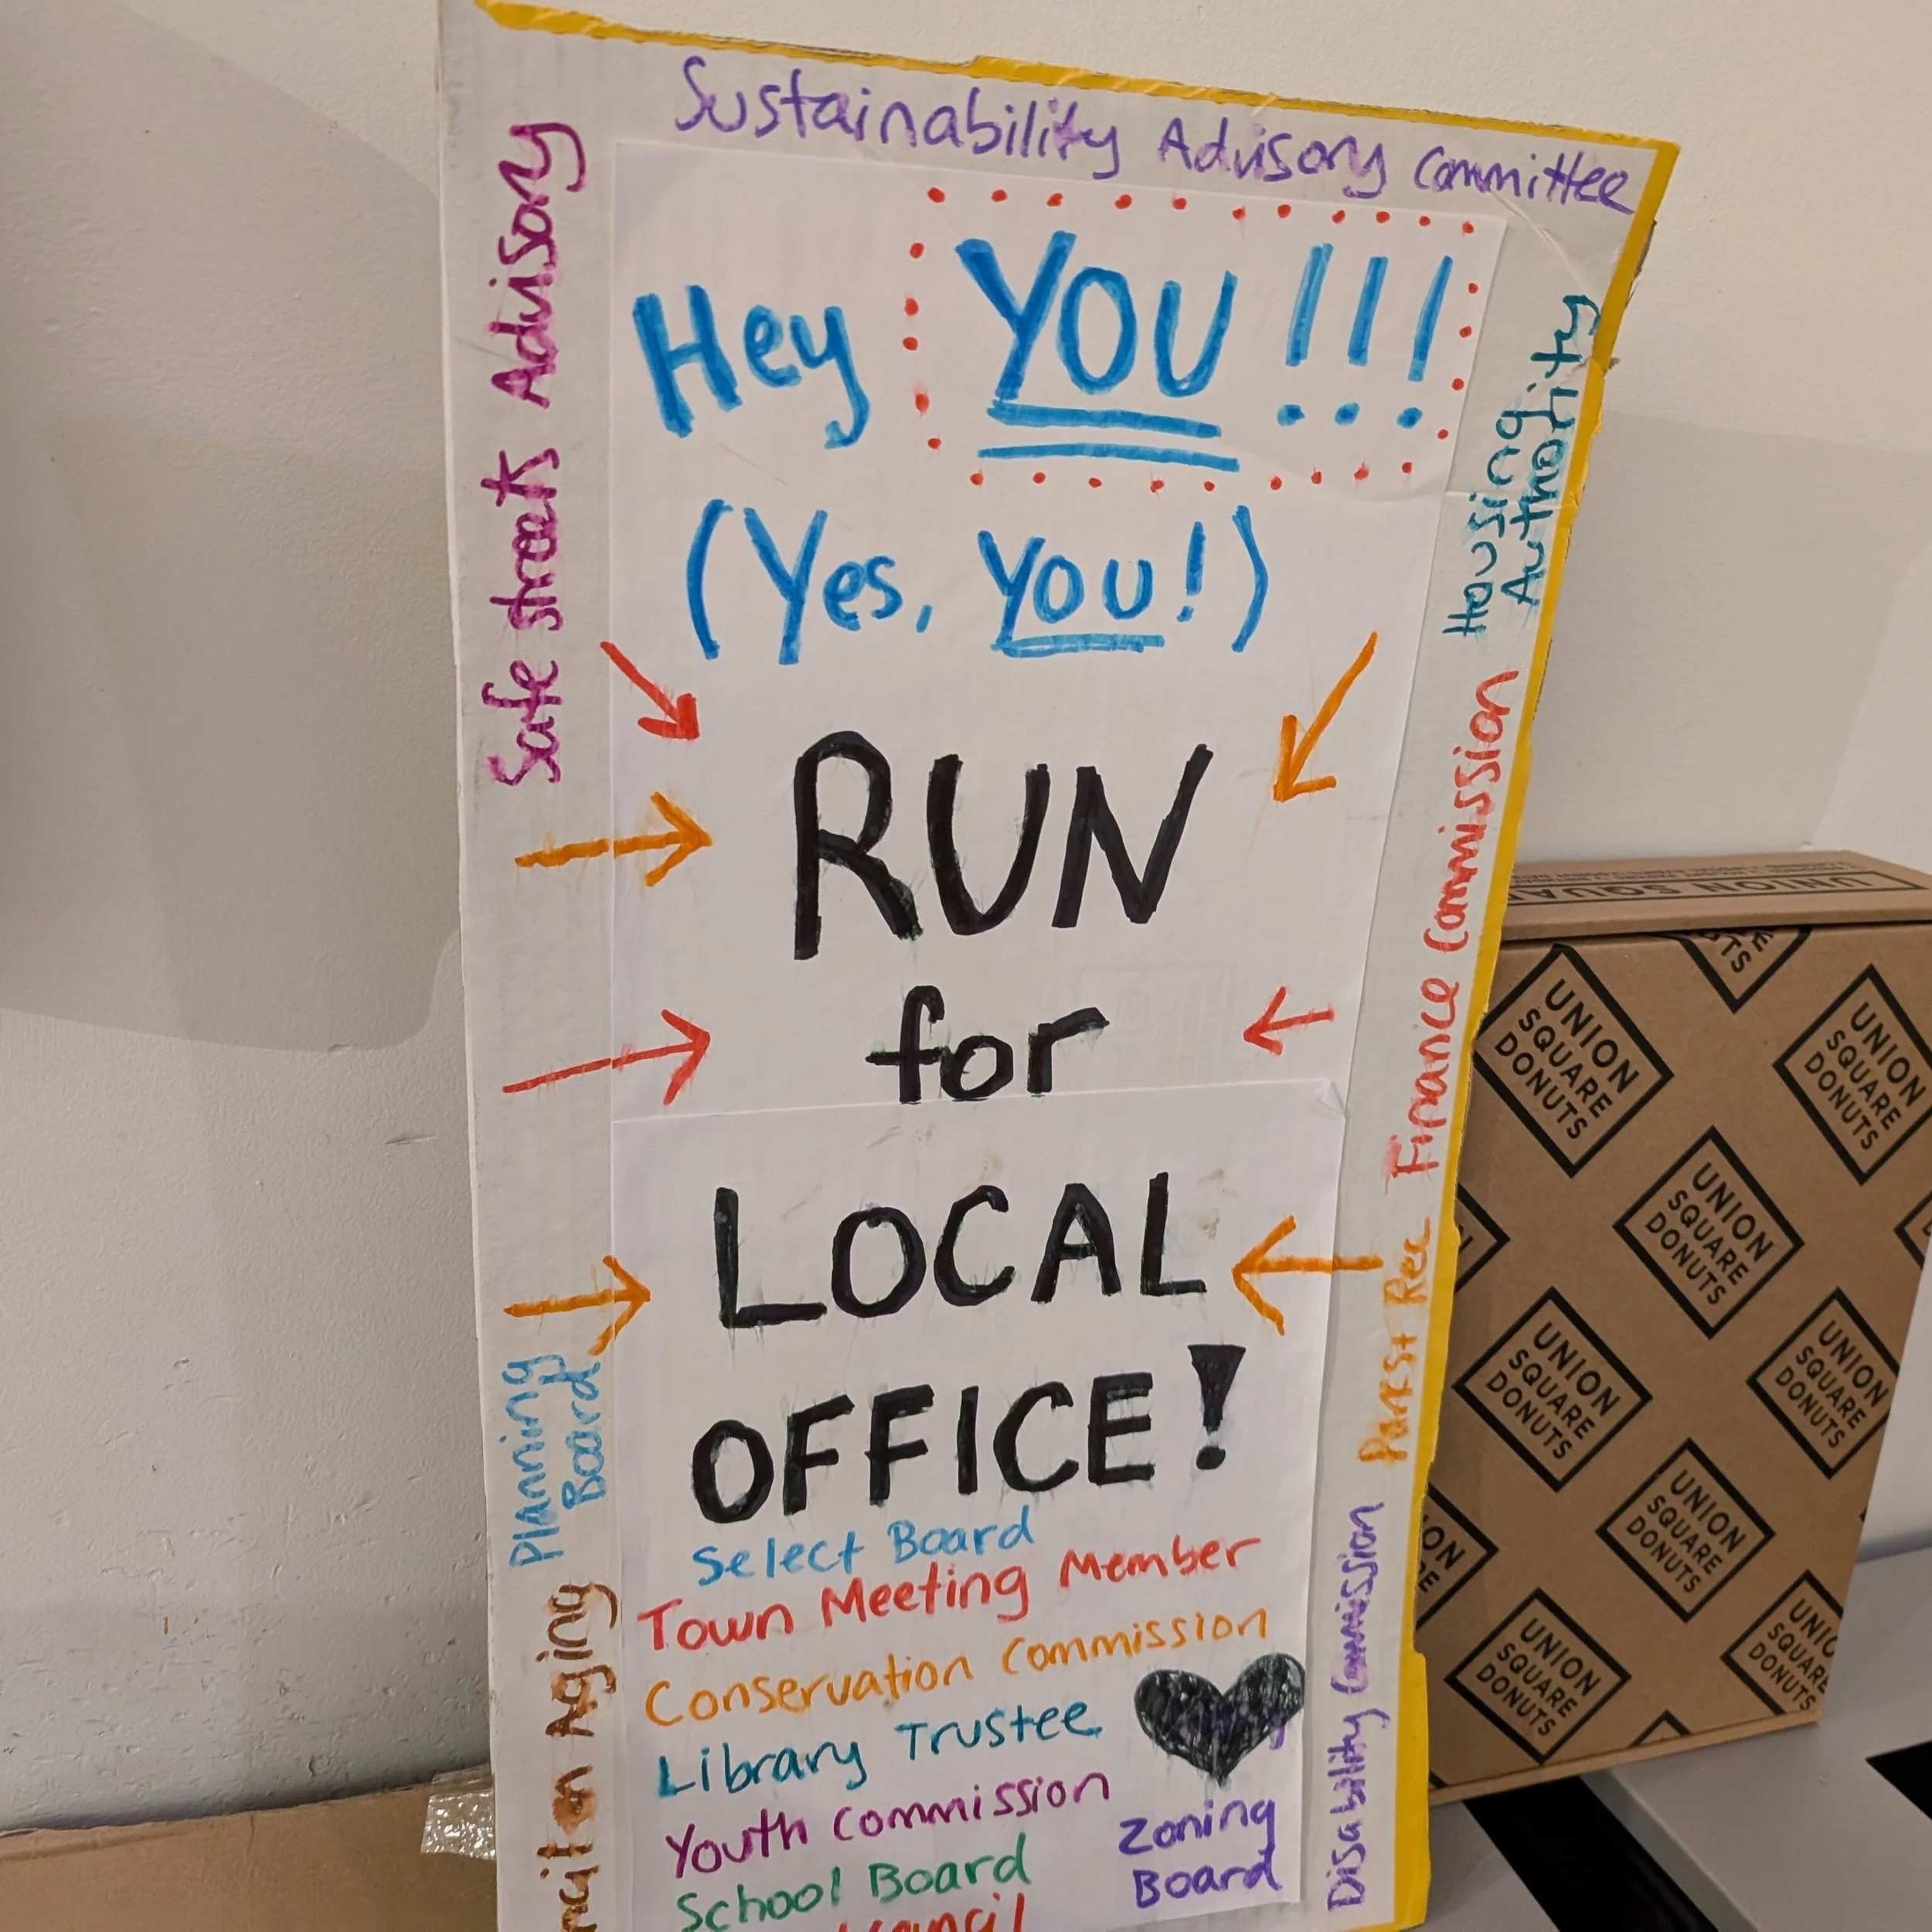 Sustainability Advisory Committee
Safe street Advisory
Hey YOU!!!
(Yes, YOU!)
Housing
Authority
RUN
for
LOCAL
OFFICE!
Finance Commission
Parks + Rec
Planning
Board
Select Board
Town Meeting Member
Conservation Commission
Library Trustee
Youth Commission
School Board
Zoning
Board
Disability Commission
on Aging
UNION SQUA
UNION
SQUARE
DONUTS
UNION
SQUARE
DONUTS
UNION
SQUARE
DONUTS
UNION
SQUARE
DONUTS
UNION
SQUARE
DONUTS
UNION
SQUARE
DONUTS
UNION
SQUARE
DONUTS
UNION
SQUARE
DONUTS